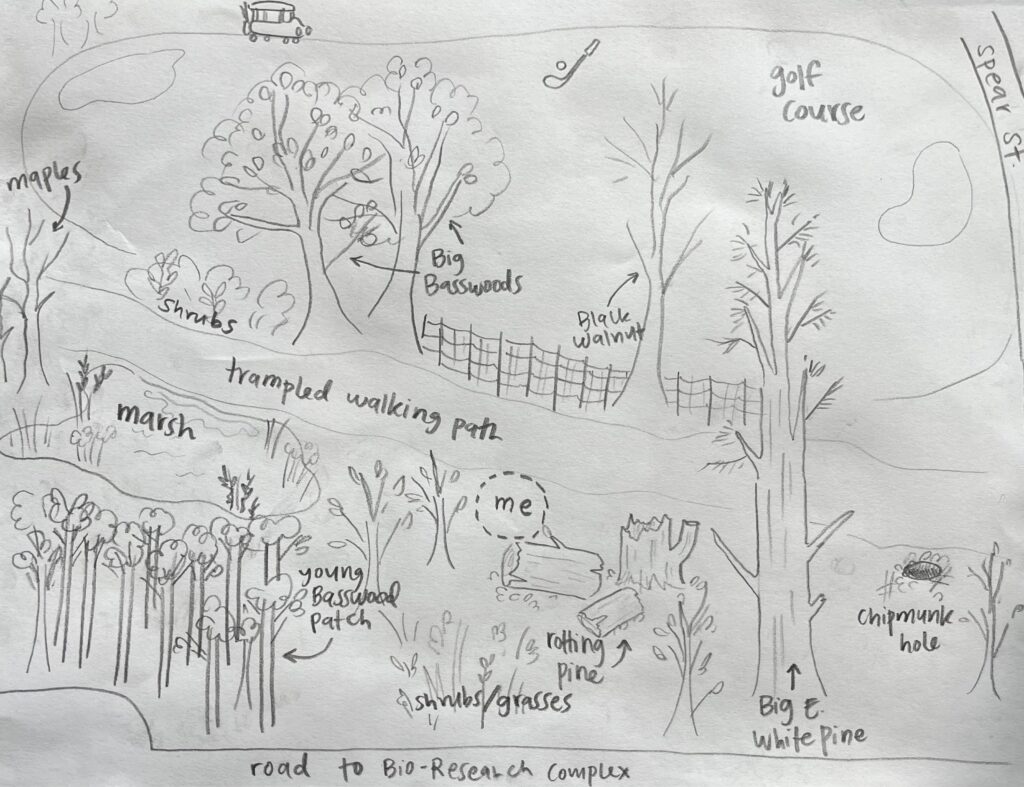 golf
course
Spear St.
maples
Big
Basswoods
shrubs
Black
walnut
trampled walking path
marsh
me
young
Basswood
patch
chipmunk
hole
rotting
pine
shrubs/grasses
Big E.
White pine
road to Bio-Research Complex